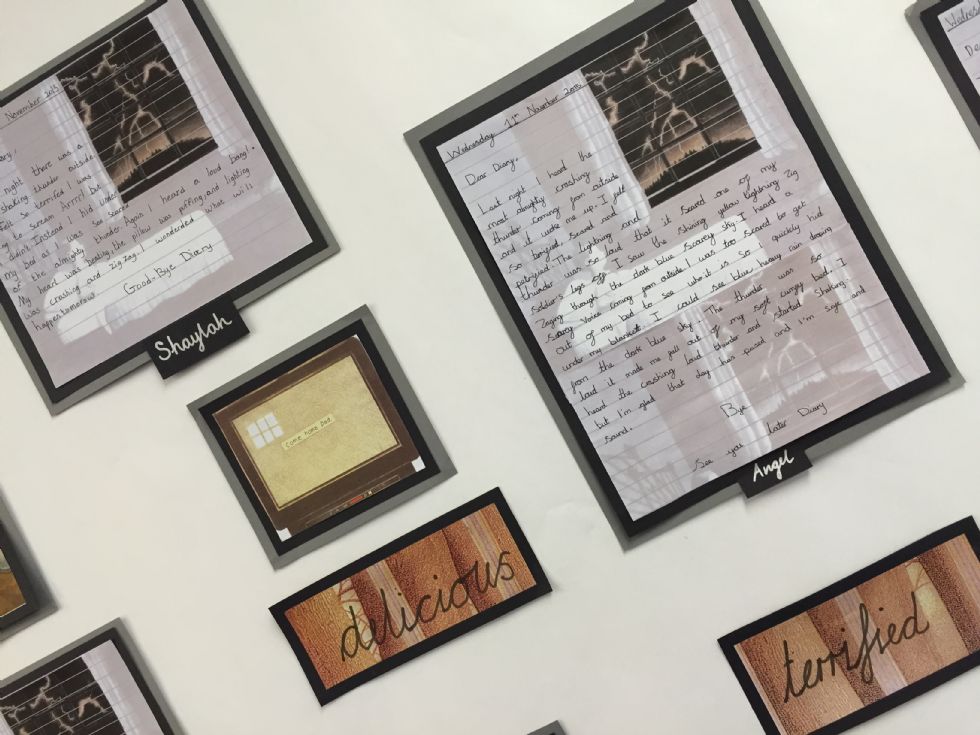 November 2015
night there was a
shaking thunder outside.
felt so terrified I was
to scream Arrr! but
didn't. Instead I hid under
My bed as I was so scared
of the almighty thunder. Again I heard a loud bang!
My heart was beating, the pillow was piffing, and lighting
was crashing and zig zag. I wonderded what will
happen tomorrow
Good-Bye Diary
Shaylah
Come home Dad.
delicious
Wednesday 11th November 2015
Dear Diary,
Last night heard the
most almighty crashing
thunder coming from outside
and it woke me up. I felt
so terrified, scared and
petrified. The lightning and
thunder was so loud that it scared one of my
Soldier's legs off. I saw the shining yellow lightning Zig
Zaging through the dark blue scarey sky. I heard a
scarey voice coming from outside. I was too scared to get
out of my bed to see who it is so quickly hid
under my blanket. I could see blue heavy rain
from the dark blue sky. The thunder was so
loud it made me fall out of my soft cumpy bed. I
heard the crashing loud thunder and started shaking.
but I'm glad that day has pased and I'm safe and
sound.
Bye
See you Later Diary
Angel
terrified
Wednes
De